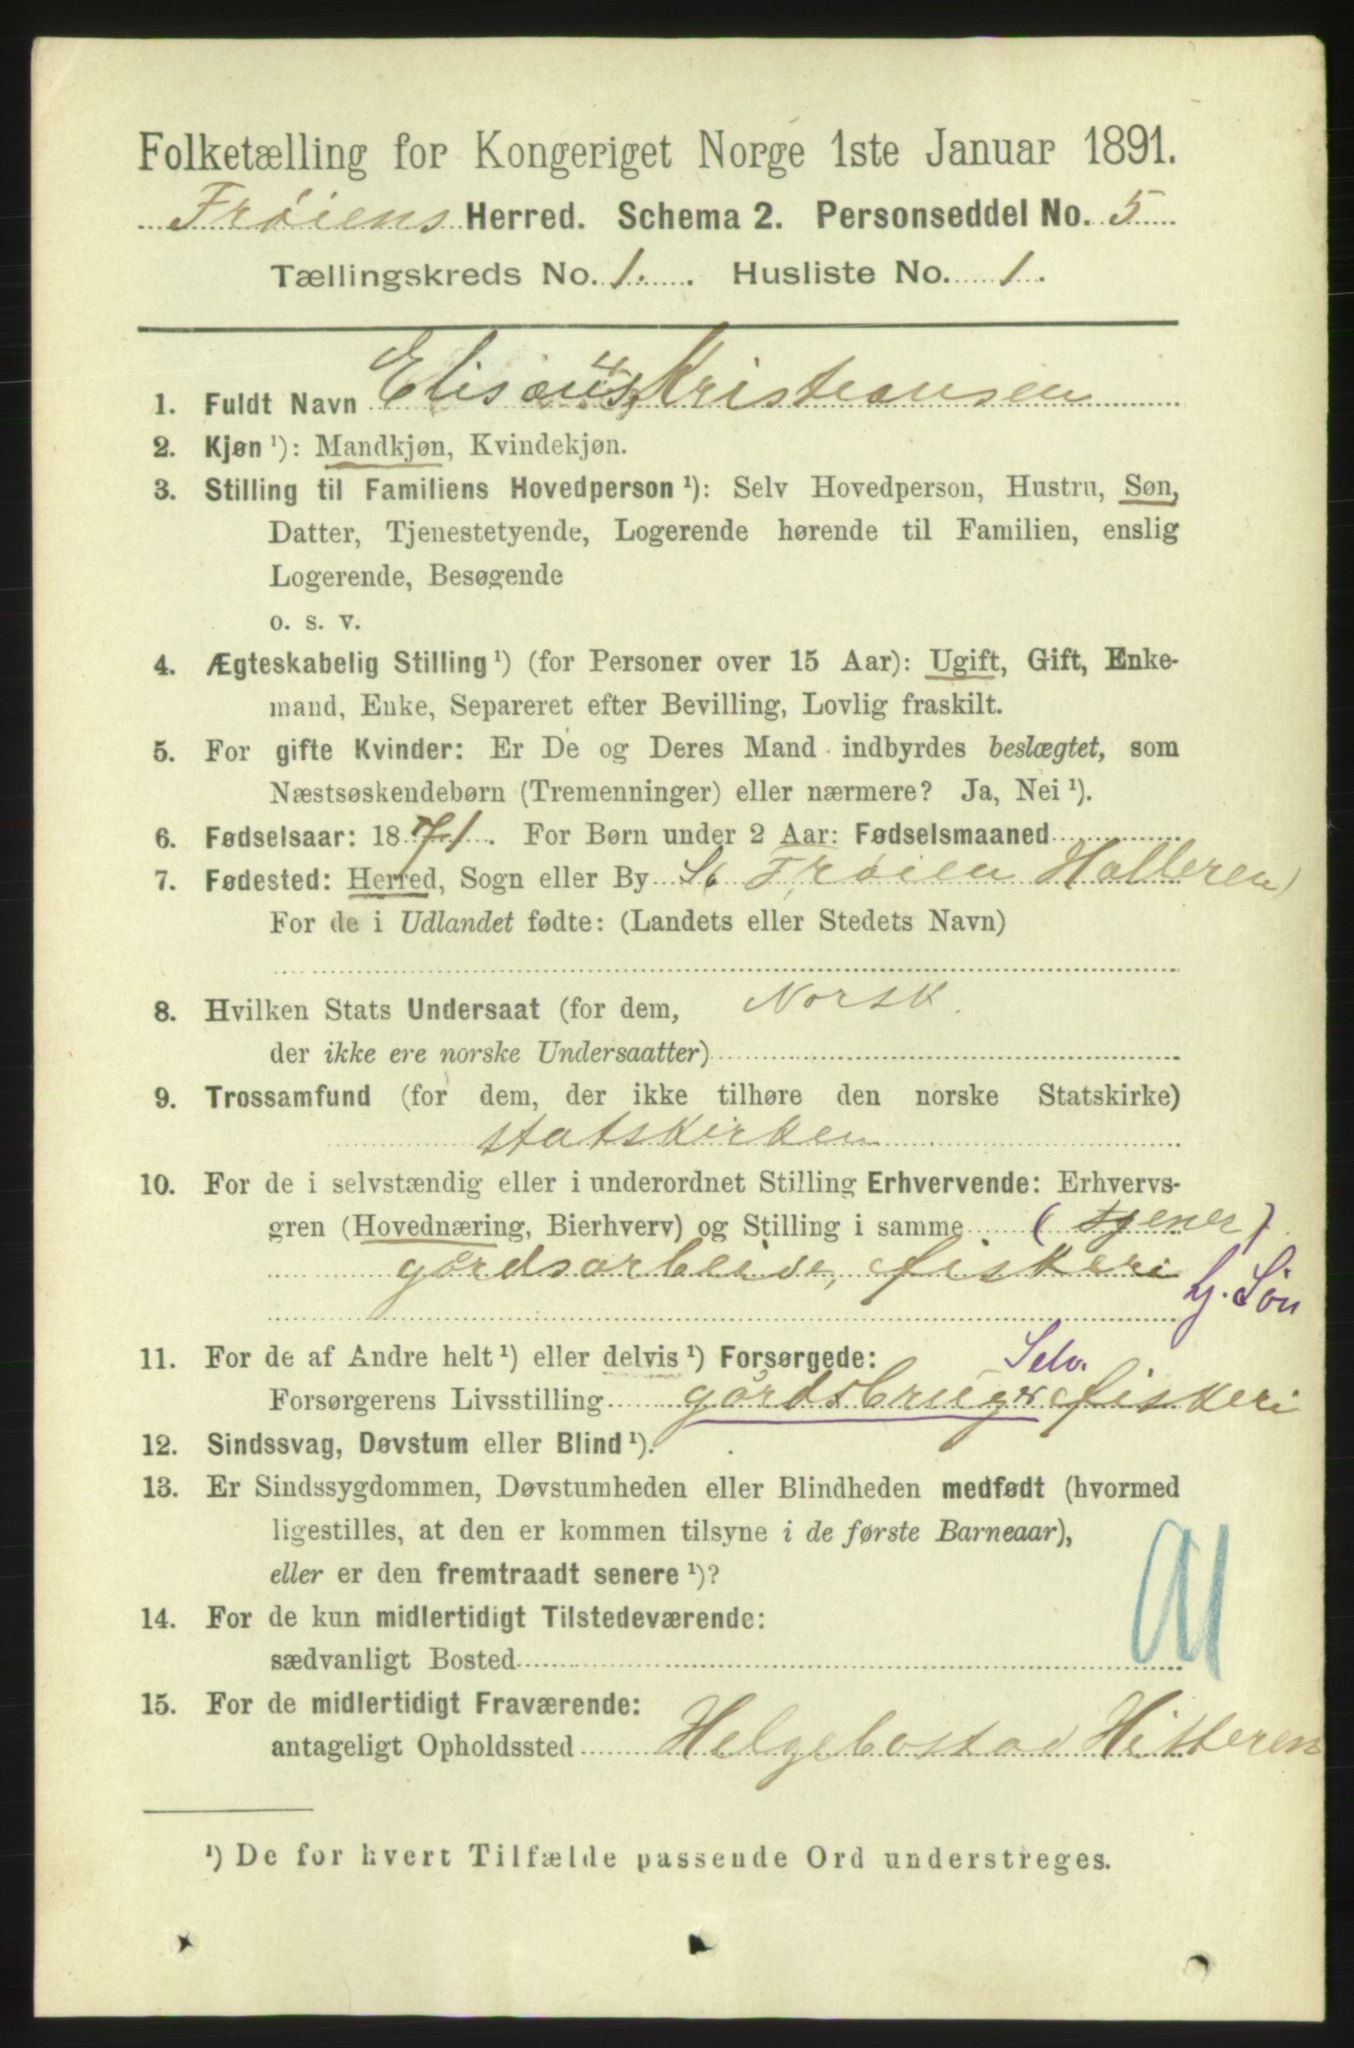 Folketælling for Kongeriget Norge 1ste Januar 1891.
Frøiens Herred. Schema 2. Personseddel No. 5
Tællingskreds No. 1. Husliste No. 1.
1. Fuldt Navn Elisæus Kristiansen
2. Kjøn ¹): Mandkjøn, Kvindekjøn.
3. Stilling til Familiens Hovedperson ¹): Selv Hovedperson, Hustru, Søn,
Datter, Tjenestetyende, Logerende hørende til Familien, enslig
Logerende, Besøgende
o. s. v.
4. Ægteskabelig Stilling ¹) (for Personer over 15 Aar): Ugift, Gift, Enke-
mand, Enke, Separeret efter Bevilling, Lovlig fraskilt.
5. For gifte Kvinder: Er De og Deres Mand indbyrdes beslægtet, som
Næstsøskendebørn (Tremenninger) eller nærmere? Ja, Nei ¹).
6. Fødselsaar: 1871. For Børn under 2 Aar: Fødselsmaaned
7. Fødested: Herred, Sogn eller By S. Frøien Halleren)
For de i Udlandet fødte: (Landets eller Stedets Navn)
8. Hvilken Stats Undersaat (for dem, Norsk.
der ikke ere norske Undersaatter)
9. Trossamfund (for dem, der ikke tilhøre den norske Statskirke)
statskirken
10. For de i selvstændig eller i underordnet Stilling Erhvervende: Erhvervs-
gren (Hovednæring, Bierhverv) og Stilling i samme (tjener)
gårdsarbeide, fiskeri
hj. Søn
11. For de af Andre helt ¹) eller delvis ¹) Forsørgede: Selv.
Forsørgerens Livsstilling gårdsbrug fiskeri
12. Sindssvag, Døvstum eller Blind ¹).
13. Er Sindssygdommen, Døvstumheden eller Blindheden medfødt (hvormed
ligestilles, at den er kommen tilsyne i de første Barneaar),
eller er den fremtraadt senere ¹)?
14. For de kun midlertidigt Tilstedeværende:
sædvanligt Bosted
15. For de midlertidigt Fraværende:
antageligt Opholdssted Helgebostad Hitteren
¹) De for hvert Tilfælde passende Ord understreges.